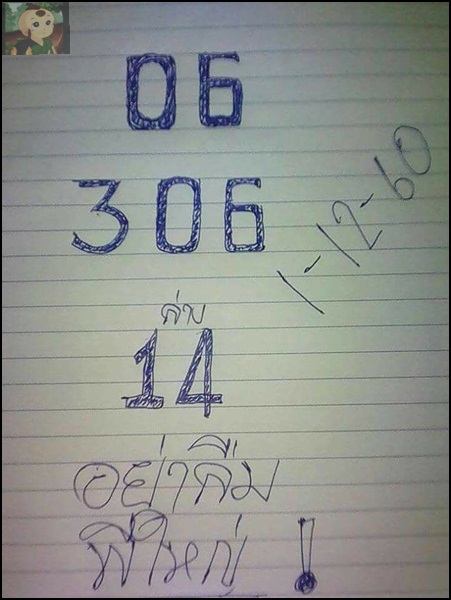 06
306
1-12-60
ล่าง
14
อย่าลืม
พี่ใหญ่ !